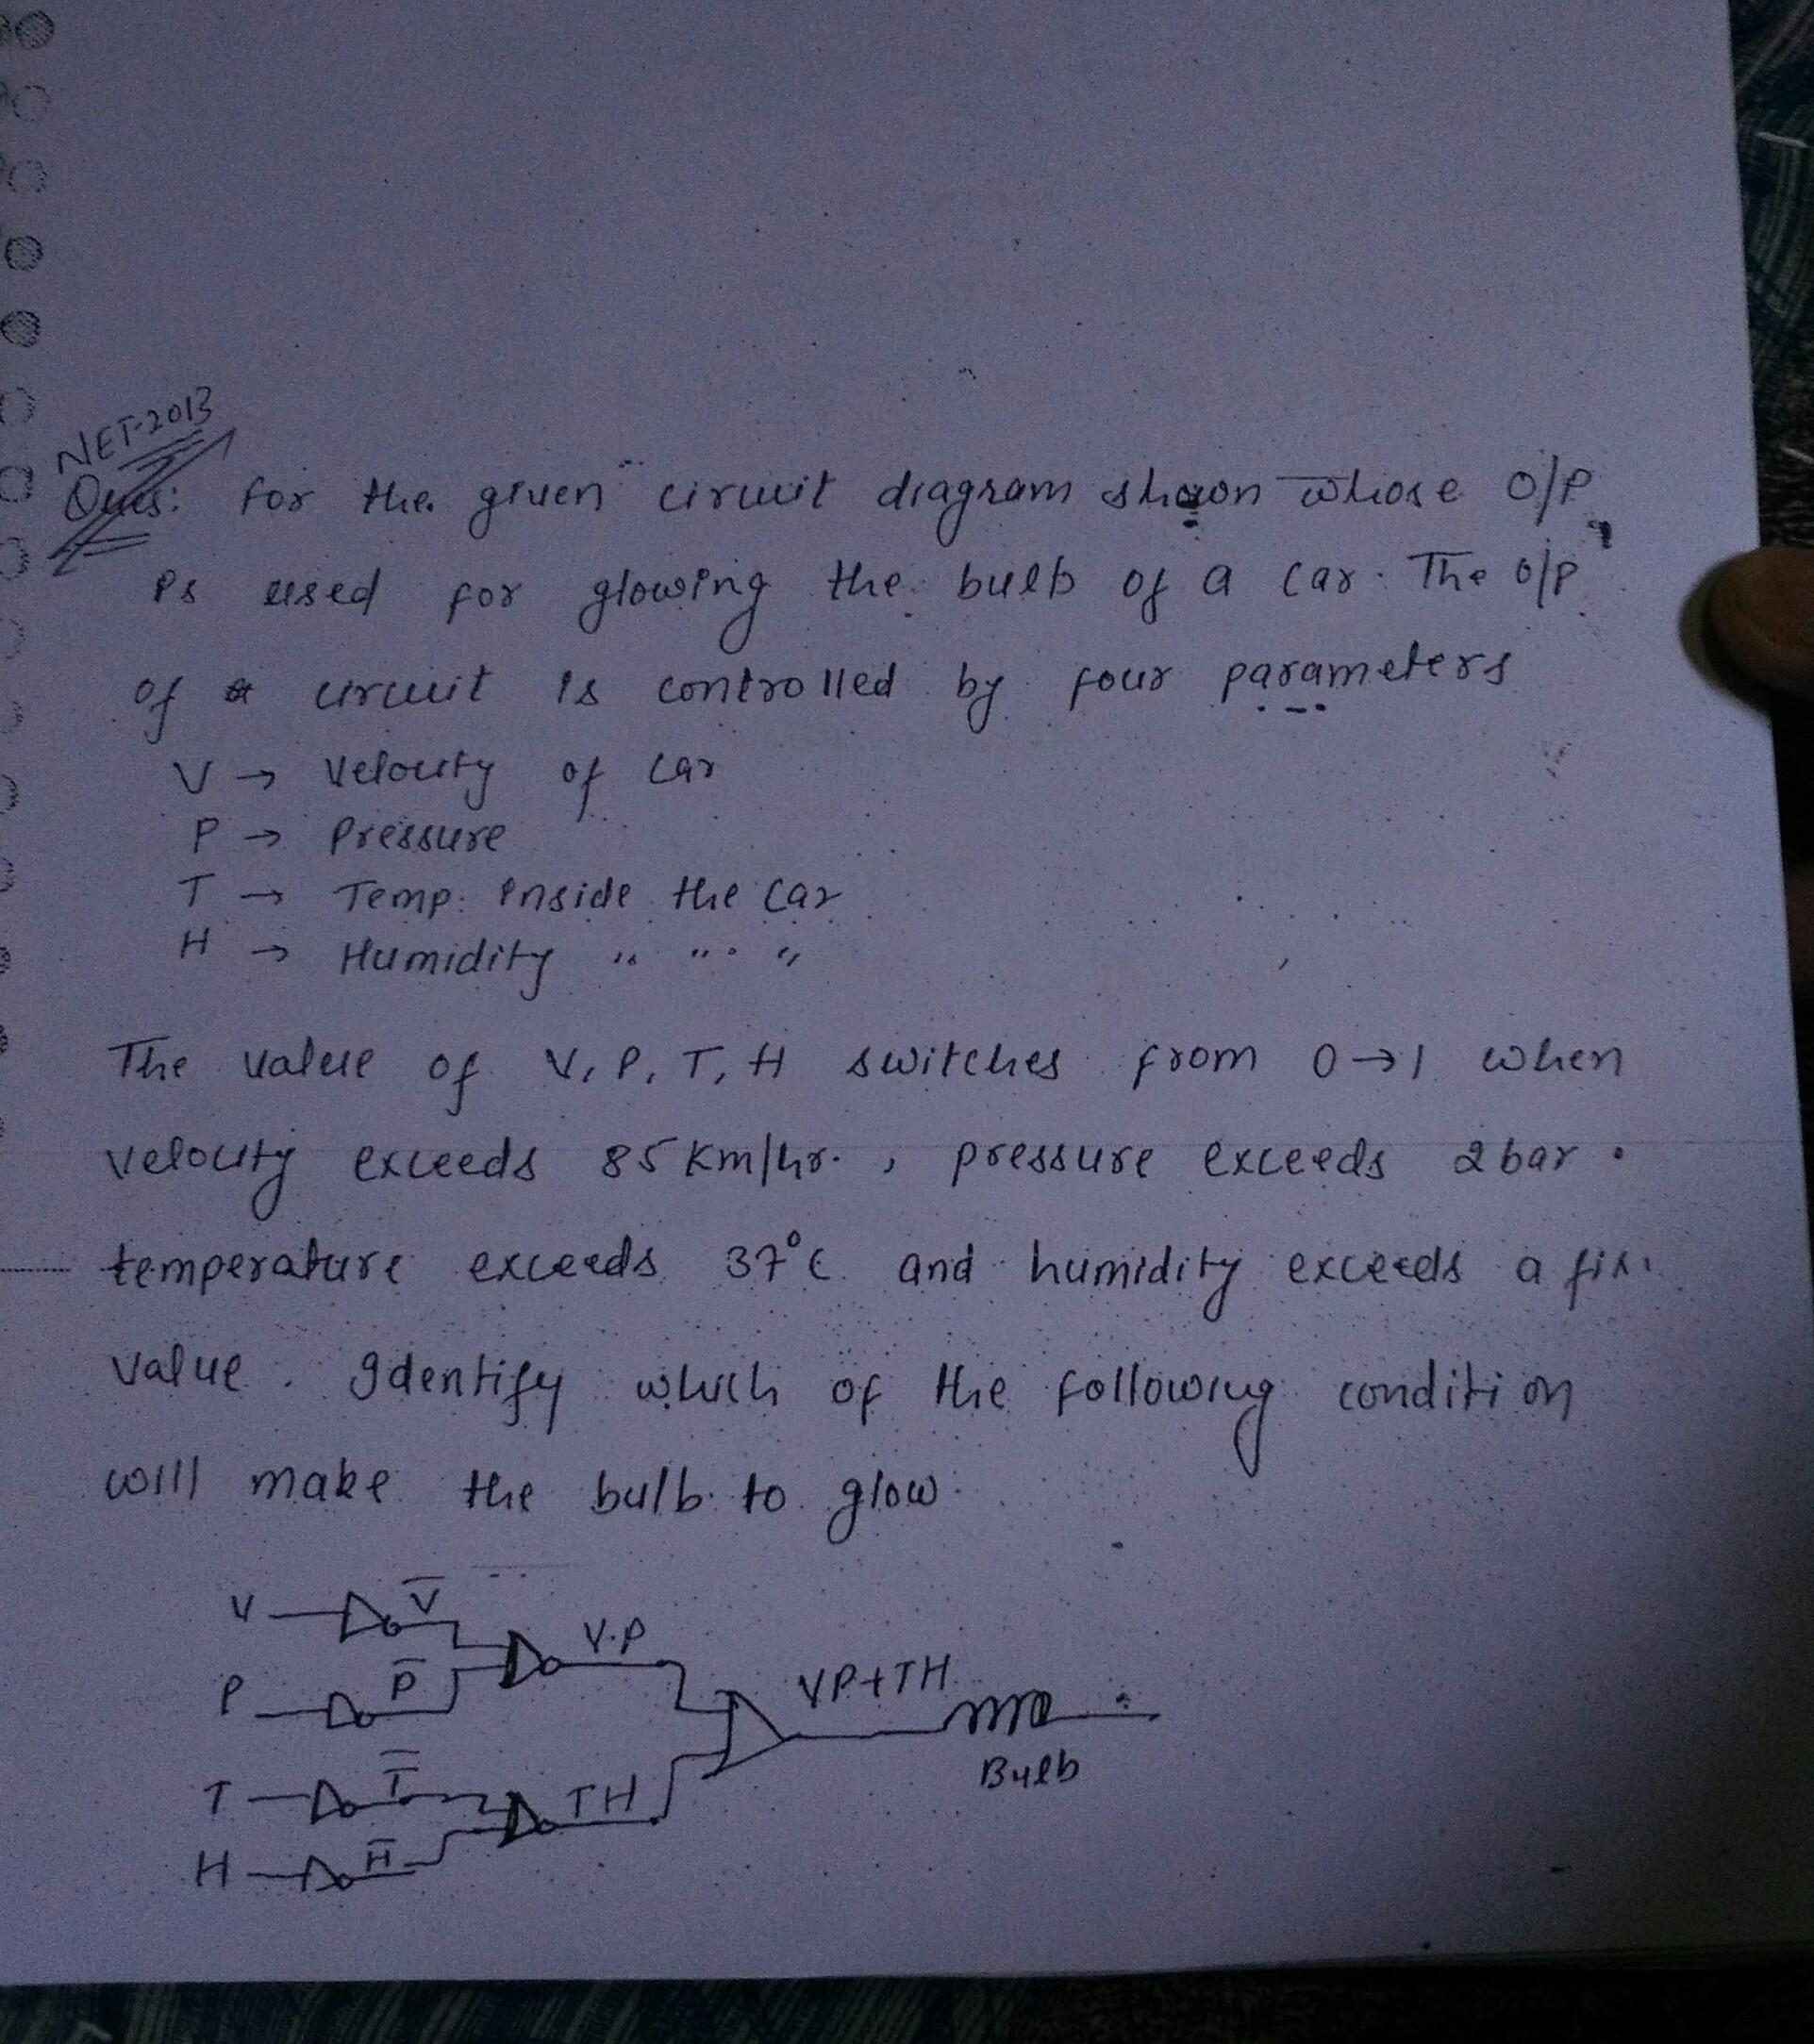 NET-2013
Ques: for the given circuit diagram shown whose O/P
is used for glowing the bulb of a car. The o/p
of circuit is controlled by four parameters
V → Velocity of car
P → Pressure
T → Temp. inside the car
H → Humidity " " "
The value of V, P, T, H switches from 0→1 when
velocity exceeds 85 Km/hr. , pressure exceeds 2 bar .
temperature exceeds 37°C and humidity exceeds a
value . Identify which of the following condition
will make the bulb to glow
V V̅ V.P
P P̅ VP+TH
Bulb
T T̅ TH
H H̅